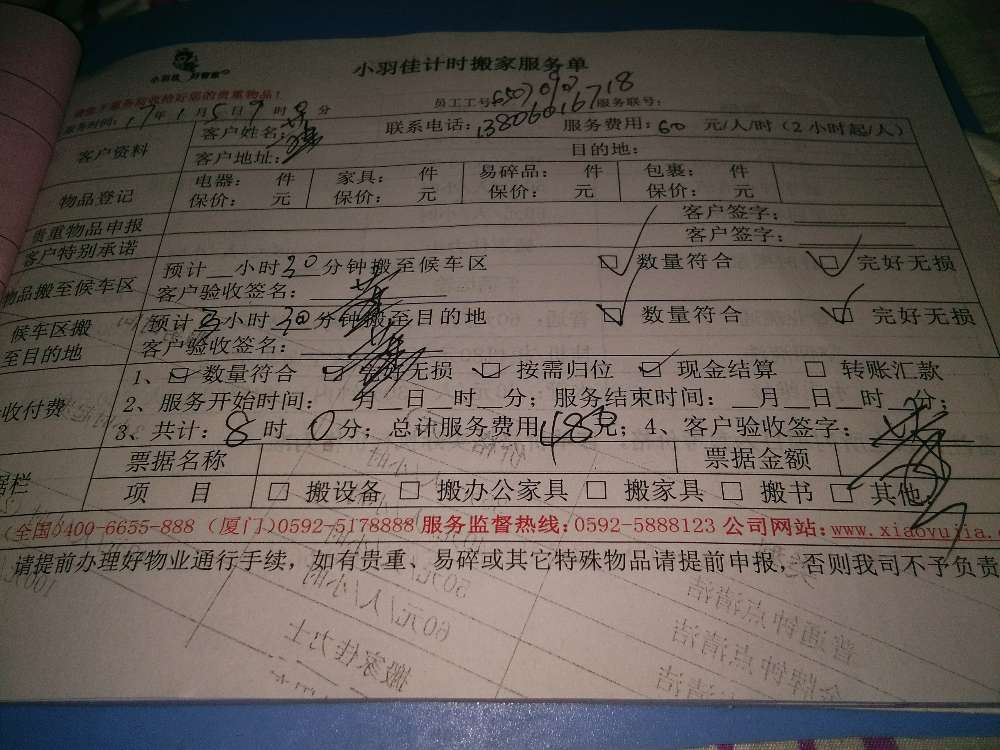 小羽佳计时搬家服务单
员工工号 服务联号：
服务时间：17年1月5日9时 分
客户资料
客户姓名： 联系电话：13806016718 服务费用：60 元/人/时（2小时起/人）
客户地址： 目的地：
物品登记
电器： 件 家具： 件 易碎品： 件 包裹： 件
保价： 元 保价： 元 保价： 元 保价： 元
贵重物品申报 客户签字：
客户特别承诺 客户签字：
物品搬至候车区
预计__小时30分钟搬至候车区 数量符合 完好无损
客户验收签名：
候车区搬至目的地
预计 小时30分钟搬至目的地 数量符合 完好无损
客户验收签名：
收付费
1、 数量符合 完好无损 按需归位 现金结算 转账汇款
2、服务开始时间：__月__日__时__分；服务结束时间：__月__日__时__分；
3、共计：8时0分；总计服务费用480元；4、客户验收签字：
票据名称 票据金额
据栏
项目 搬设备 搬办公家具 搬家具 搬书 其他：
(全国)400-6655-888 (厦门)0592-5178888 服务监督热线：0592-5888123 公司网站：www.xiaoyujia.c
请提前办理好物业通行手续，如有贵重、易碎或其它特殊物品请提前申报，否则我司不予负责